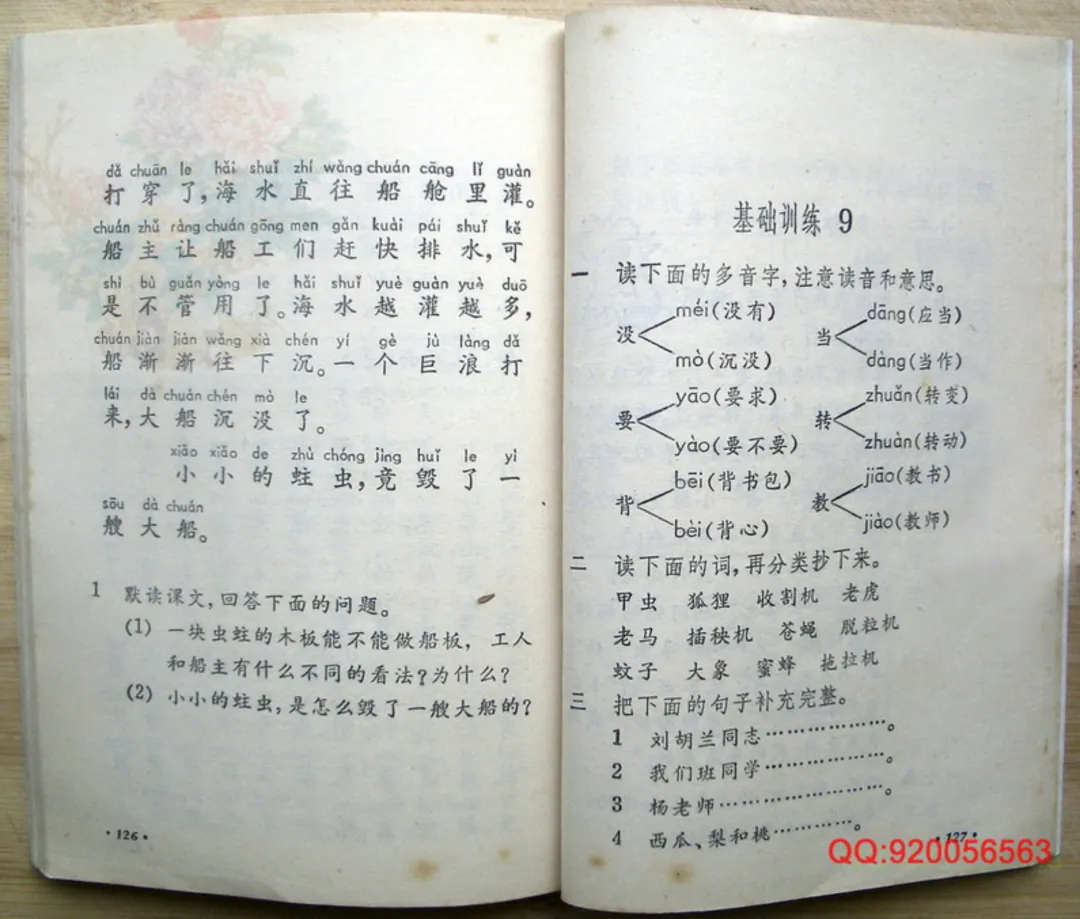 dǎ chuān le hǎi shuǐ zhí wǎng chuán cāng lǐ guàn
打穿了,海水直往船舱里灌。
chuán zhǔ ràng chuán gōng men gǎn kuài pái shuǐ kě
船主让船工们赶快排水,可
shì bù guǎn yòng le hǎi shuǐ yuè guàn yuè duō
是不管用了。海水越灌越多,
chuán jiàn jiàn wǎng xià chén yí gè jù làng dǎ
船渐渐往下沉。一个巨浪打
lái dà chuán chén mò le
来,大船沉没了。
xiǎo xiǎo de zhù chóng jìng huǐ le yì
小小的蛀虫,竟毁了一
sōu dà chuán
艘大船。
1 默读课文,回答下面的问题。
(1) 一块虫蛀的木板能不能做船板,工人
和船主有什么不同的看法?为什么?
(2) 小小的蛀虫,是怎么毁了一艘大船的?
·126·
基础训练 9
一 读下面的多音字,注意读音和意思。
没 méi(没有) mò(沉没) 当 dāng(应当) dàng(当作)
要 yāo(要求) yào(要不要) 转 zhuǎn(转变) zhuàn(转动)
背 bēi(背书包) bèi(背心) 教 jiāo(教书) jiào(教师)
二 读下面的词,再分类抄下来。
甲虫 狐狸 收割机 老虎
老马 插秧机 苍蝇 脱粒机
蚊子 大象 蜜蜂 拖拉机
三 把下面的句子补充完整。
1 刘胡兰同志………………。
2 我们班同学………………。
3 杨老师……………………。
4 西瓜、梨和桃…………。
·127·
QQ:920056563